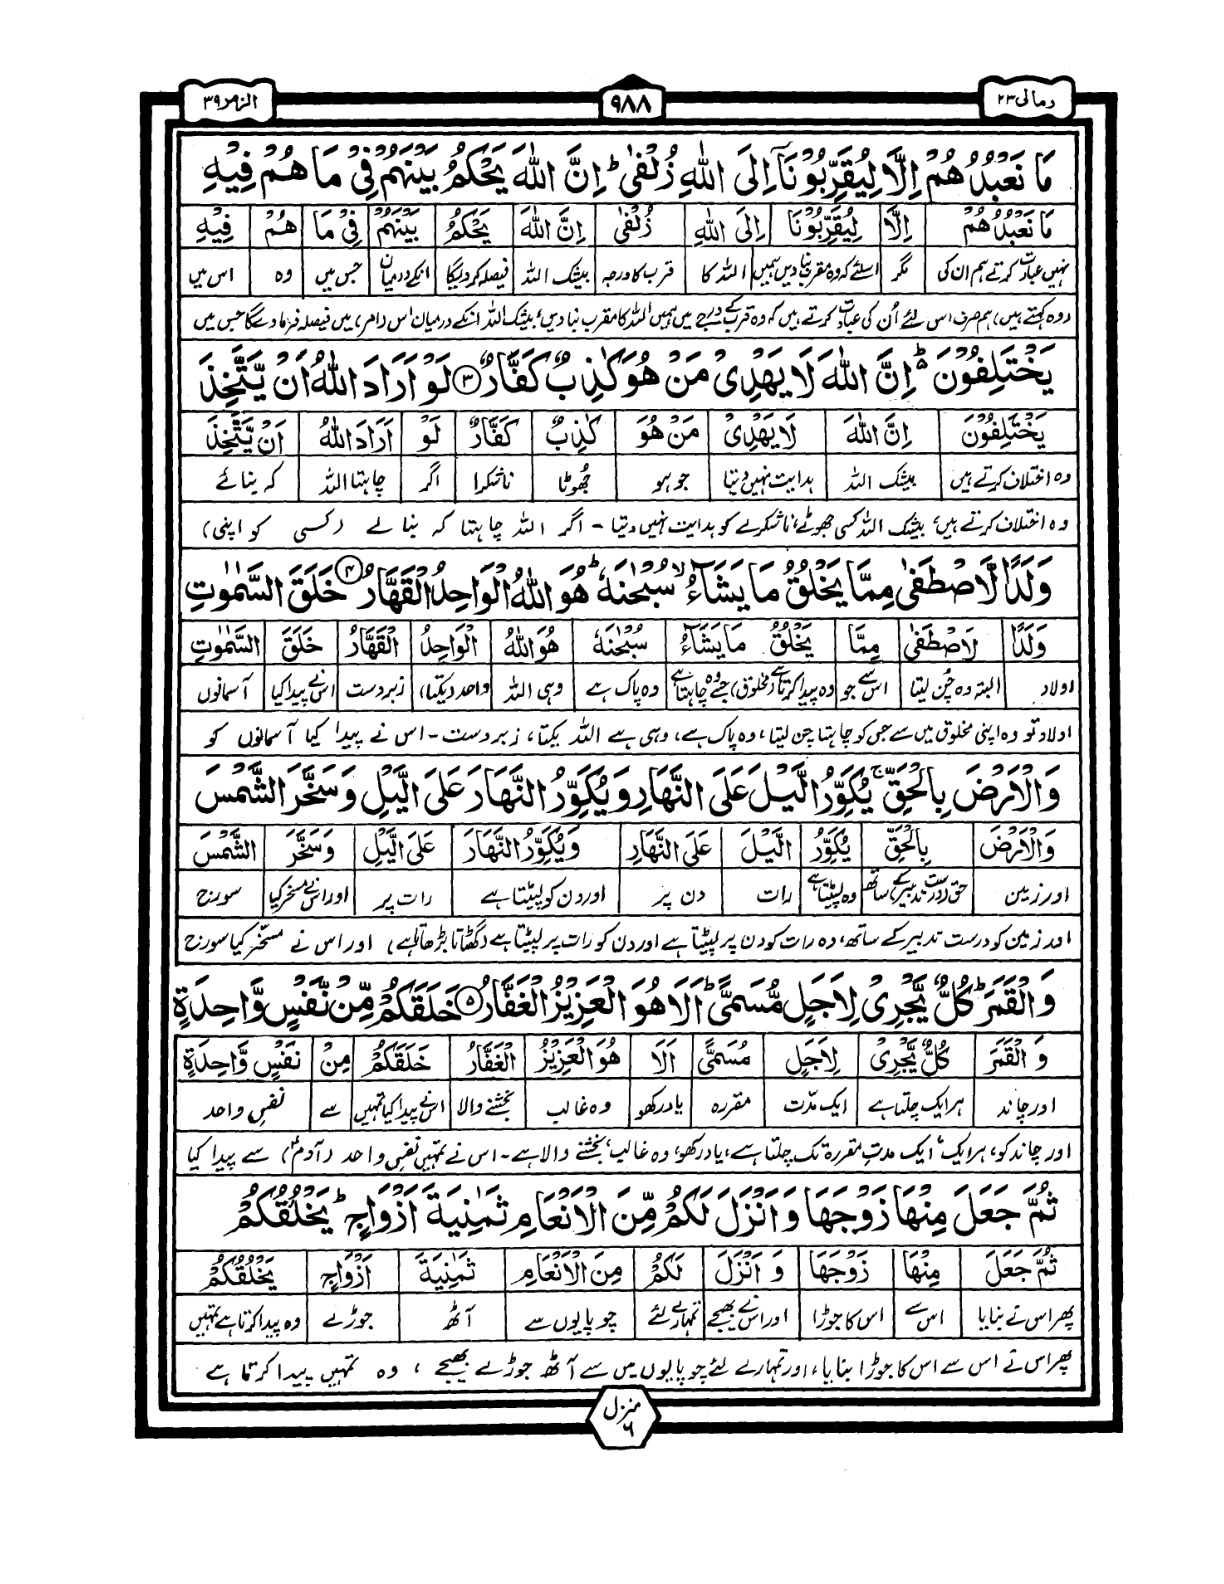 الزمر ۳۹
۹۸۸
ومالی ۲۳
مَا نَعْبُدُهُمْ اِلَّا لِيُقَرِّبُوْنَآ اِلَى اللّٰهِ زُلْفٰى ؕ اِنَّ اللّٰهَ يَحْكُمُ بَيْنَهُمْ فِيْ مَا هُمْ فِيْهِ
مَا نَعْبُدُهُمْ اِلَّا لِيُقَرِّبُوْنَا اِلَى اللّٰهِ زُلْفٰى اِنَّ اللّٰهَ يَحْكُمُ بَيْنَهُمْ فِيْ مَا هُمْ فِيْهِ
نہیں عبادت کرتے ہم ان کی مگر اسلئے کہ وہ مقرب بنا دیں ہمیں اللہ کا قرب کا درجہ بیشک اللہ فیصلہ کر دیگا انکے درمیان جس میں وہ اس میں
(وہ کہتے ہیں) ہم صرف اس لئے اُن کی عبادت کرتے ہیں کہ وہ قرب کے درجے میں ہمیں اللہ کا مقرب بنا دیں، بیشک اللہ انکے درمیان اس (امر) میں فیصلہ فرما دے گا جس میں
يَخْتَلِفُوْنَ ؕ اِنَّ اللّٰهَ لَا يَهْدِيْ مَنْ هُوَ كٰذِبٌ كَفَّارٌ ۳ لَوْ اَرَادَ اللّٰهُ اَنْ يَّتَّخِذَ
يَخْتَلِفُوْنَ اِنَّ اللّٰهَ لَا يَهْدِيْ مَنْ هُوَ كٰذِبٌ كَفَّارٌ لَوْ اَرَادَ اللّٰهُ اَنْ يَّتَّخِذَ
وہ اختلاف کرتے ہیں بیشک اللہ ہدایت نہیں دیتا جو ہو جُھوٹا ناشکرا اگر چاہتا اللہ کہ بنائے
وہ اختلاف کرتے ہیں، بیشک اللہ کسی جھوٹے، ناشکرے کو ہدایت نہیں دیتا - اگر اللہ چاہتا کہ بنا لے (کسی کو اپنی)
وَلَدًا لَّاصْطَفٰى مِمَّا يَخْلُقُ مَا يَشَآءُ ۙ سُبْحٰنَهٗ ؕ هُوَ اللّٰهُ الْوَاحِدُ الْقَهَّارُ ۴ خَلَقَ السَّمٰوٰتِ
وَلَدًا لَاصْطَفٰى مِمَّا يَخْلُقُ مَا يَشَآءُ سُبْحٰنَهٗ هُوَ اللّٰهُ الْوَاحِدُ الْقَهَّارُ خَلَقَ السَّمٰوٰتِ
اولاد البتہ وہ چُن لیتا اس سے جو وہ پیدا کرتا ہے (مخلوق) جسے وہ چاہتا ہے وہ پاک ہے وہی اللہ واحد (یکتا) زبردست اس نے پیدا کیا آسمانوں
اولاد تو وہ اپنی مخلوق میں سے جس کو چاہتا چن لیتا، وہ پاک ہے، وہی ہے اللہ یکتا، زبردست - اس نے پیدا کیا آسمانوں کو
وَالْاَرْضَ بِالْحَقِّ ۚ يُكَوِّرُ الَّيْلَ عَلَى النَّهَارِ وَيُكَوِّرُ النَّهَارَ عَلَى الَّيْلِ وَسَخَّرَ الشَّمْسَ
وَالْاَرْضَ بِالْحَقِّ يُكَوِّرُ الَّيْلَ عَلَى النَّهَارِ وَيُكَوِّرُ النَّهَارَ عَلَى الَّيْلِ وَسَخَّرَ الشَّمْسَ
اور زمین حق (درست تدبیر) کے ساتھ وہ لپیٹتا ہے رات دن پر اور دن کو لپیٹتا ہے رات پر اور اس نے مسخر کیا سورج
اور زمین کو درست تدبیر کے ساتھ، وہ رات کو دن پر لپیٹتا ہے اور دن کو رات پر لپیٹتا ہے (گھٹاتا بڑھاتا ہے) اور اس نے مسخّر کیا سورج
وَالْقَمَرَ ؕ كُلٌّ يَّجْرِيْ لِاَجَلٍ مُّسَمًّى ؕ اَلَا هُوَ الْعَزِيْزُ الْغَفَّارُ ۵ خَلَقَكُمْ مِّنْ نَّفْسٍ وَّاحِدَةٍ
وَ الْقَمَرَ كُلٌّ يَّجْرِيْ لِاَجَلٍ مُسَمًّى اَلَا هُوَ الْعَزِيْزُ الْغَفَّارُ خَلَقَكُمْ مِنْ نَفْسٍ وَّاحِدَةٍ
اور چاند ہر ایک چلتا ہے ایک مدّت مقررہ یاد رکھو وہ غالب بخشنے والا اس نے پیدا کیا تمہیں سے نفسِ واحد
اور چاند کو، ہر ایک، ایک مدتِ مقررہ تک چلتا ہے، یاد رکھو، وہ غالب، بخشنے والا ہے - اس نے تمہیں نفسِ واحد (آدمؑ) سے پیدا کیا
ثُمَّ جَعَلَ مِنْهَا زَوْجَهَا وَاَنْزَلَ لَكُمْ مِّنَ الْاَنْعَامِ ثَمٰنِيَةَ اَزْوَاجٍ ؕ يَخْلُقُكُمْ
ثُمَّ جَعَلَ مِنْهَا زَوْجَهَا وَ اَنْزَلَ لَكُمْ مِنَ الْاَنْعَامِ ثَمٰنِيَةَ اَزْوَاجٍ يَخْلُقُكُمْ
پھر اس نے بنایا اس سے اس کا جوڑا اور اس نے بھیجے تمہارے لئے چوپایوں سے آٹھ جوڑے وہ پیدا کرتا ہے تمہیں
پھر اس نے اس سے اس کا جوڑا بنایا، اور تمہارے لئے چوپایوں میں سے آٹھ جوڑے بھیجے ، وہ تمہیں پیدا کرتا ہے
منزل
۶